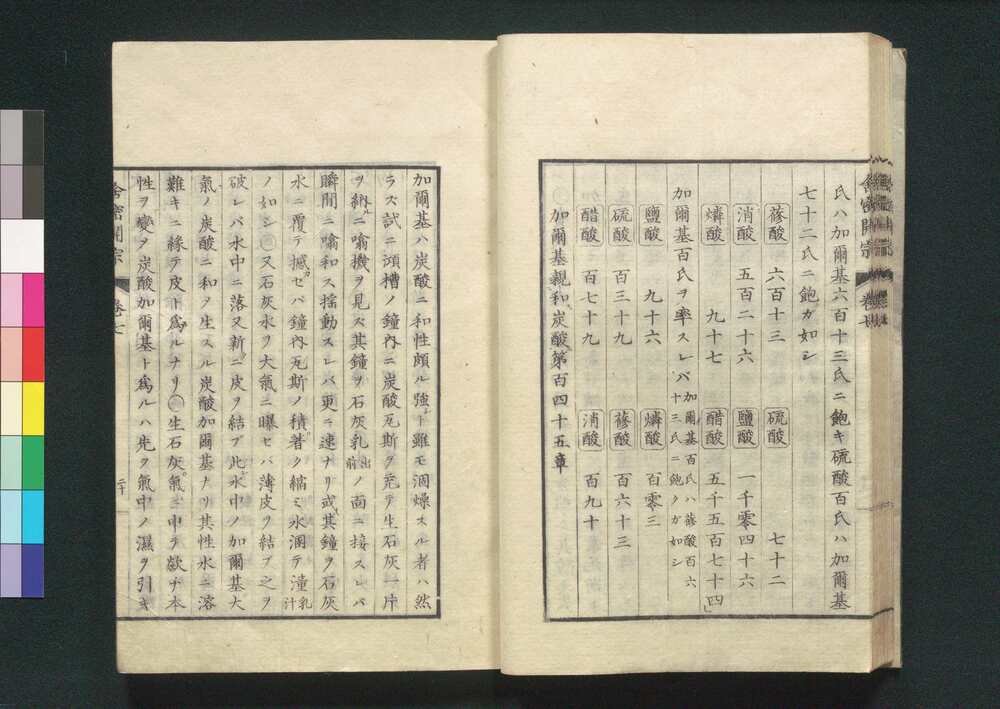 氏ハ加爾基六百十三氏ニ飽キ硫酸百氏ハ加爾基
七十二氏ニ飽ガ如シ
蓚酸 六百十三 硫酸 七十二
消酸 五百二十六 鹽酸 一千零四十六
燐酸 九十七 醋酸 五千五百七十四
加爾基百氏ヲ率スレバ 加爾基百氏ハ蓚酸百六
十三氏ニ飽クガ如シ
鹽酸 九十六 燐酸 百零三
硫酸 百三十九 蓚酸 百六十三
醋酸 百七十九 消酸 百九十
加爾基親和炭酸第百四十五章
舍密開宗 卷七
加爾基ハ炭酸ニ和性頗ル強ト雖モ涸燥スル者ハ然
ラズ試ニ項槽ノ鐘內ニ炭酸瓦斯ヲ充テ生石灰一片
ヲ納ルニ噏機ヲ見ズ其鐘ヲ石灰乳 出前 ノ面ニ接スレバ
瞬間ニ噏和ス搖動スレバ更ニ速ナリ或其鐘ヲ石灰
水ニ覆テ撼セバ鐘內瓦斯ノ積著ク縮ミ水溷テ潼 乳汁
ノ如シ〇又石灰水ヲ大氣ニ曝セバ薄皮ヲ結ブ之ヲ
破レバ水中ニ落又新ニ皮ヲ結ブ此水中ノ加爾基大
氣ノ炭酸ニ和ヲ生スル炭酸加爾基ナリ其性水ニ溶
難キニ緣テ皮ト爲ルナリ〇生石灰氣中ニ歇ヂ本
性ヲ變ヲ炭酸加爾基ト爲ルハ先ヲ氣中ノ濕ヲ引キ
舍密開宗 卷七 二十